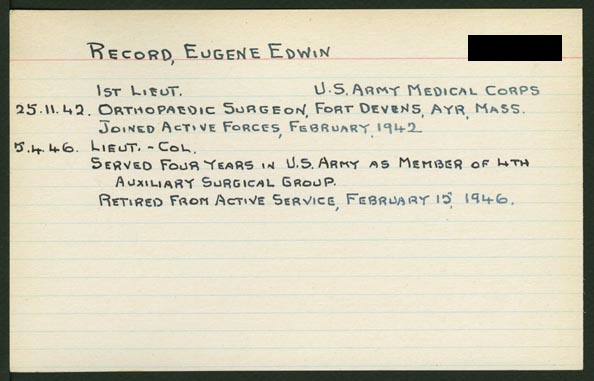 RECORD, EUGENE EDWIN
1ST LIEUT. U.S. ARMY MEDICAL CORPS
25.11.42. ORTHOPAEDIC SURGEON, FORT DEVENS, AYR, MASS.
JOINED ACTIVE FORCES, FEBRUARY, 1942
5.4.46. LIEUT.-COL.
SERVED FOUR YEARS IN U.S. ARMY AS MEMBER OF 4TH
AUXILIARY SURGICAL GROUP.
RETIRED FROM ACTIVE SERVICE, FEBRUARY 15, 1946.